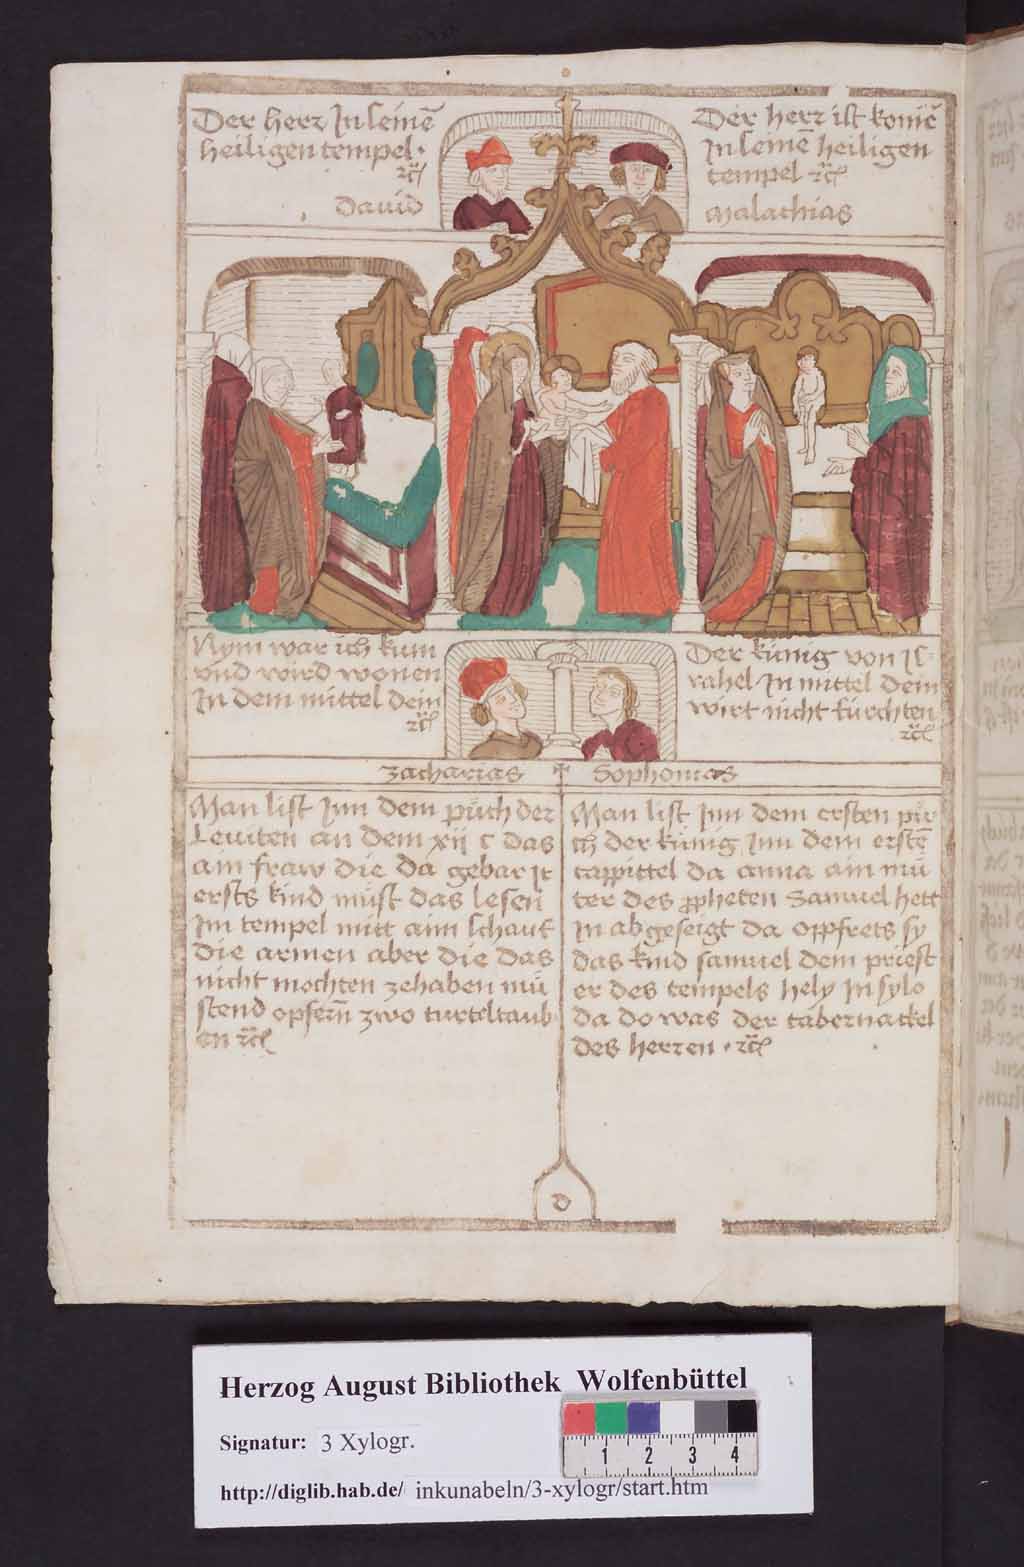 Der herr In seinē
heiligen tempel ·
ꝛc̄
dauid
Der herr ist komē
In seinē heiligen
tempel ꝛc̄
Malachias
Nym war ich kum
vnd wird wonen
In dem mittel dein
ꝛc̄
Der künig von Is-
rahel In mittel dein
wirt nicht fürchten
ꝛc̄
zacharias
Sophonias
Man list Inn dem půch der
Leuiten an dem xij c das
ain fraw die da gebar Ir
ersts kind můst das lesen
Im tempel mitt aim schauf
die armen aber die das
nicht mochten zehaben mů
stend opfern̄ zwo turteltaub
en ꝛc̄
Man list Inn dem ersten pů
ch der künig Inn dem erstē
cappittel da anna ain mů
ter des propheten Samuel hett
In abgeseigt da oppfrets sy
das kind samuel dem priest
er des tempels hely In sylo
da do was der tabernackel
des herren · ꝛc̄
d
Herzog August Bibliothek Wolfenbüttel
Signatur: 3 Xylogr.
http://diglib.hab.de/ inkunabeln/3-xylogr/start.htm
1 2 3 4